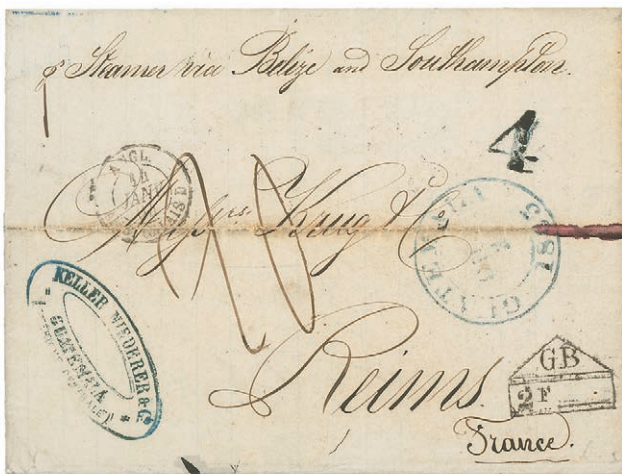 pr Steamer via Belize and Southampton.
4
ANGL.
JANV
Messrs Krug & Co
GUATEMALA
KELLER NIEDERER & Co
GUATEMALA
Reims.
GB
2F
France.